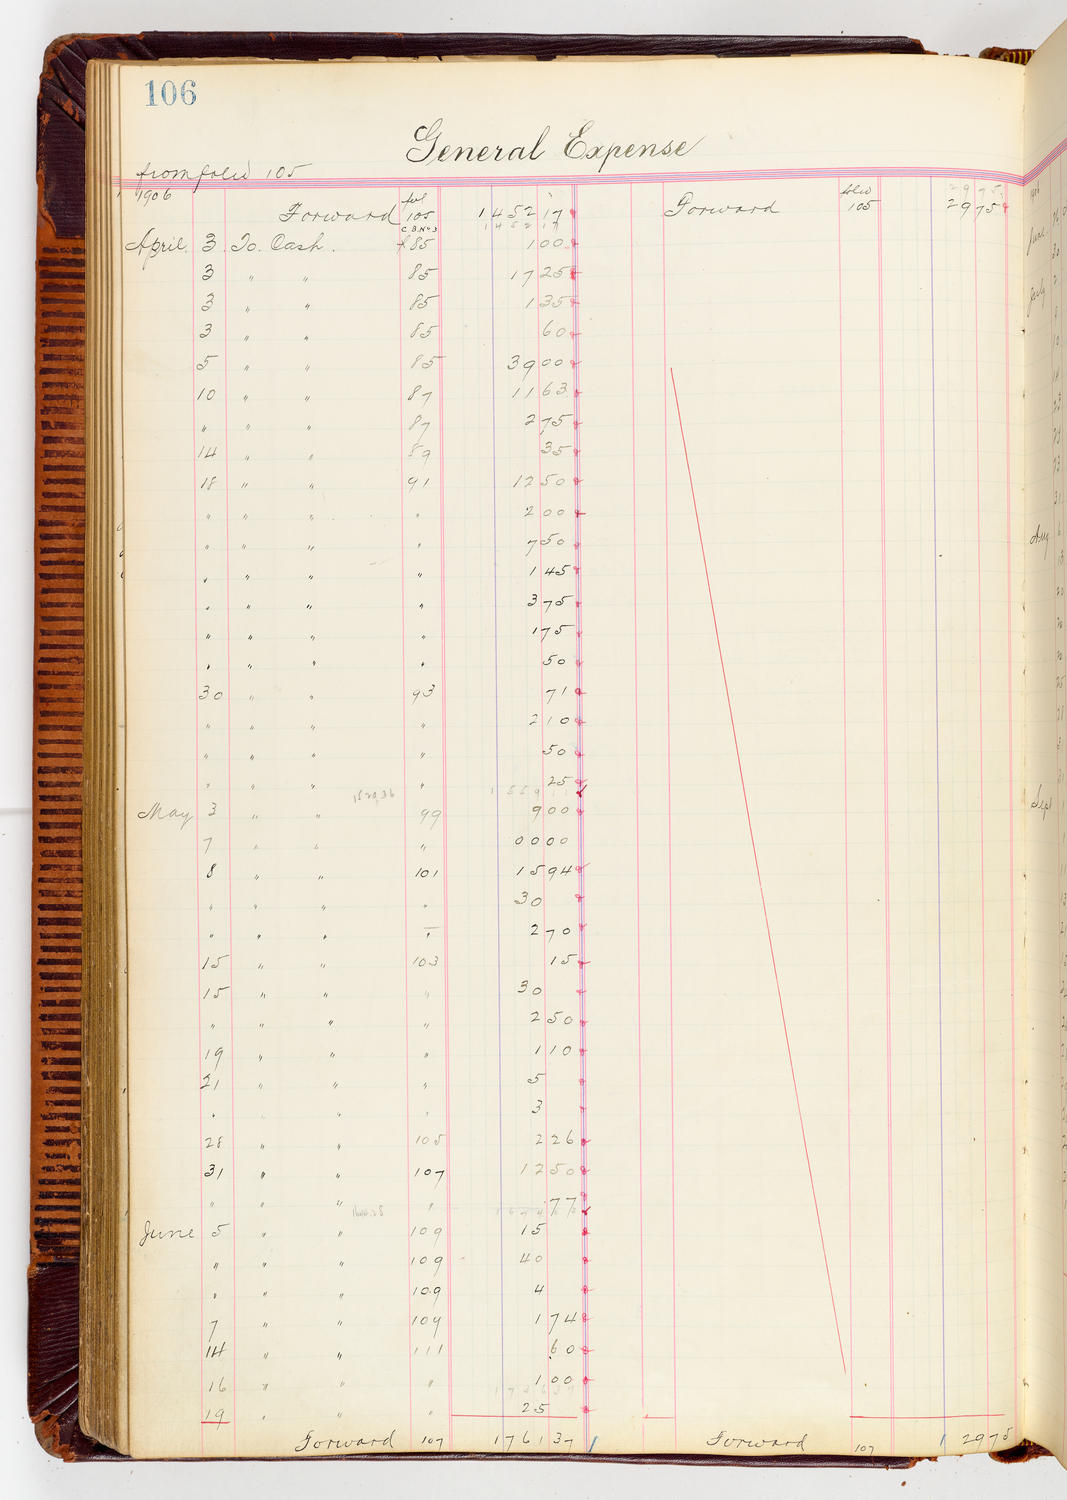 106
General Expense
from folio 105
1906
Forward fol 105 1452 17 Forward folio 105 29 75
C.B. No 3
1452 17
April 3 To Cash. f 85 1 00
3 " " 85 17 25
3 " " 85 1 35
3 " " 85 60
5 " " 85 39 00
10 " " 87 11 63
" " " 87 2 75
14 " " 89 35
18 " " 91 12 50
" " " " 2 00
" " " " 7 50
" " " " 1 45
" " " " 3 75
" " " " 1 75
" " " " 50
30 " " 93 71
" " " " 2 10
" " " " 50
" " " " 25
May 3 " " 99 9 00
7 " " " 00 00
8 " " 101 15 94
" " " " 30
" " " " 2 70
15 " " 103 15
15 " " " 30
" " " " 2 50
19 " " " 1 10
21 " " " 5
" " " " 3
28 " " 105 2 26
31 " " 107 12 50
" " " " 77
June 5 " " 109 15
" " " 109 40
" " " 109 4
7 " " 109 1 74
14 " " 111 60
16 " " " 1 00
19 " " " 25
Forward 107 1761 37 Forward 107 29 75
June
July
Aug
Sept